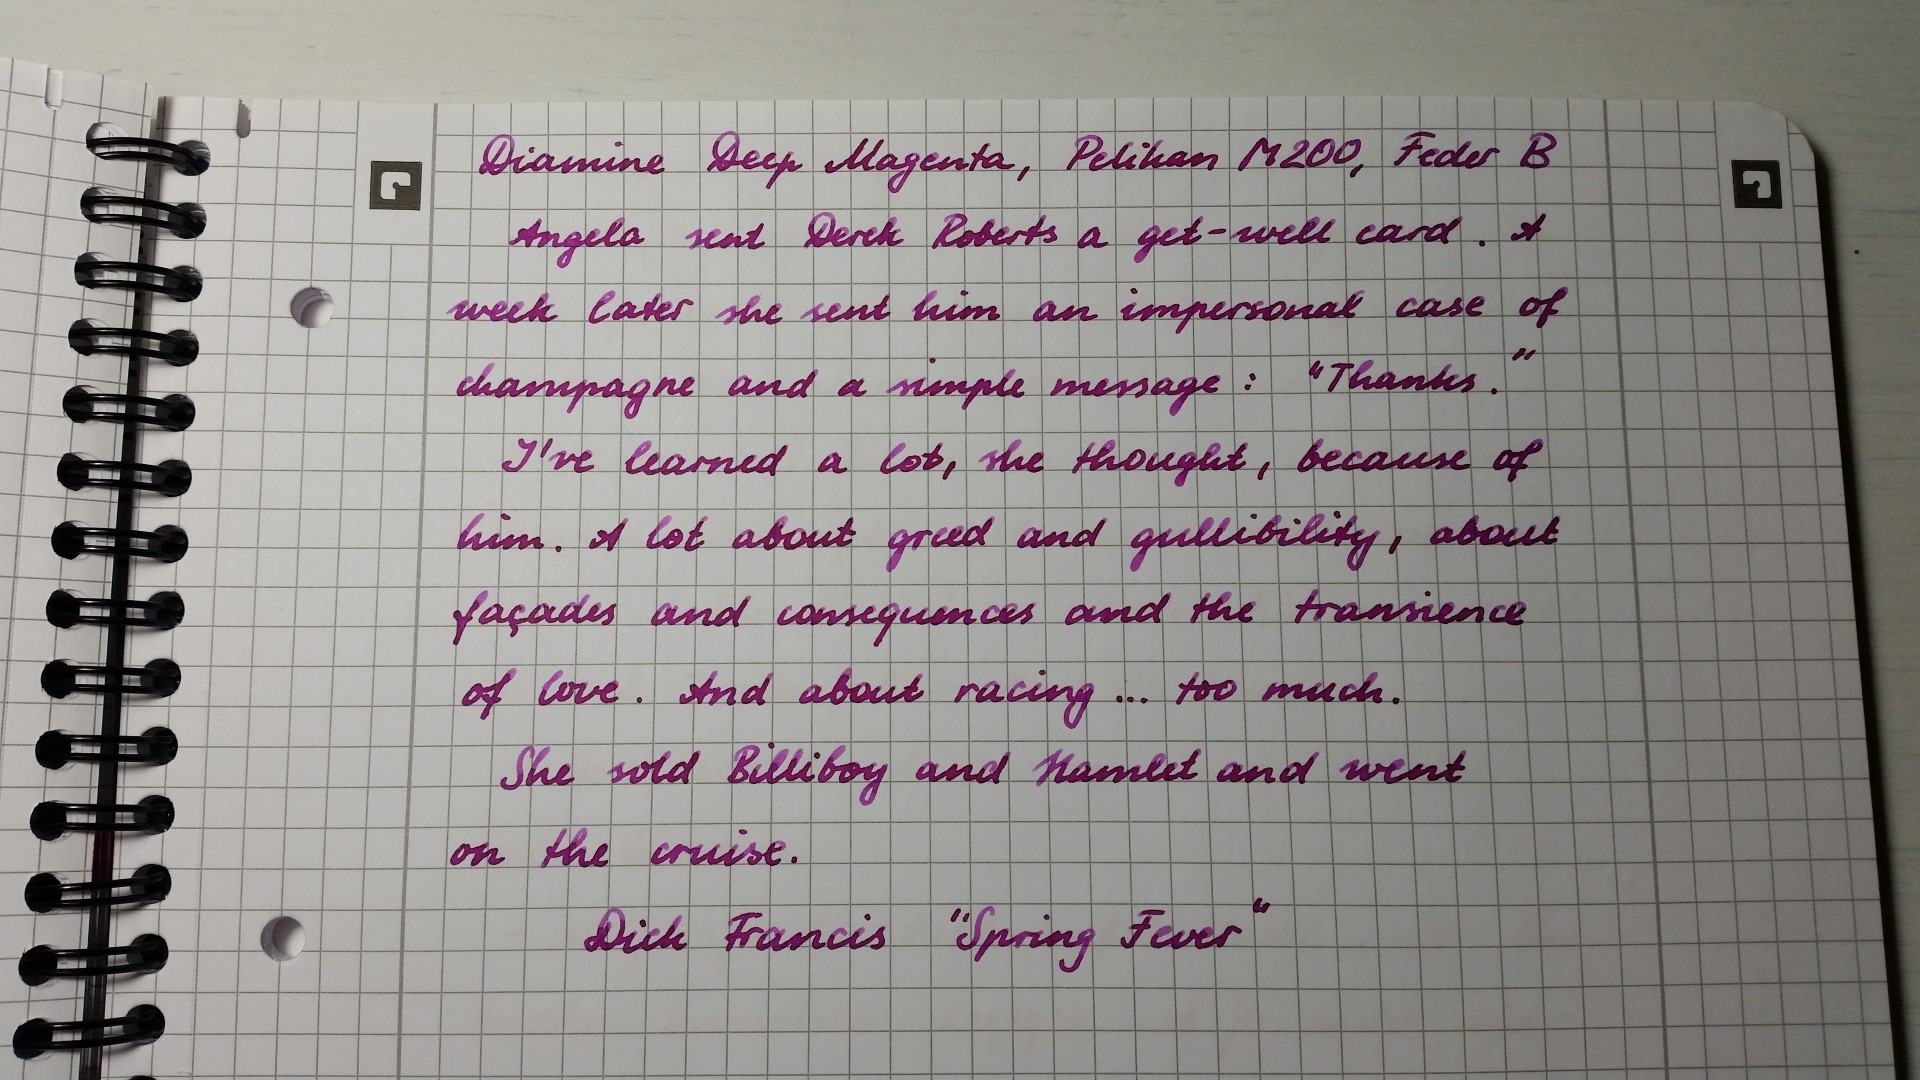 Diamine Deep Magenta, Pelikan M200, Feder B
Angela sent Derek Roberts a get-well card. A
week later she sent him an impersonal case of
champagne and a simple message: "Thanks."
I've learned a lot, she thought, because of
him. A lot about greed and gullibility, about
façades and consequences and the transience
of love. And about racing... too much.
She sold Billiboy and Hamlet and went
on the cruise.
Dick Francis "Spring Fever"